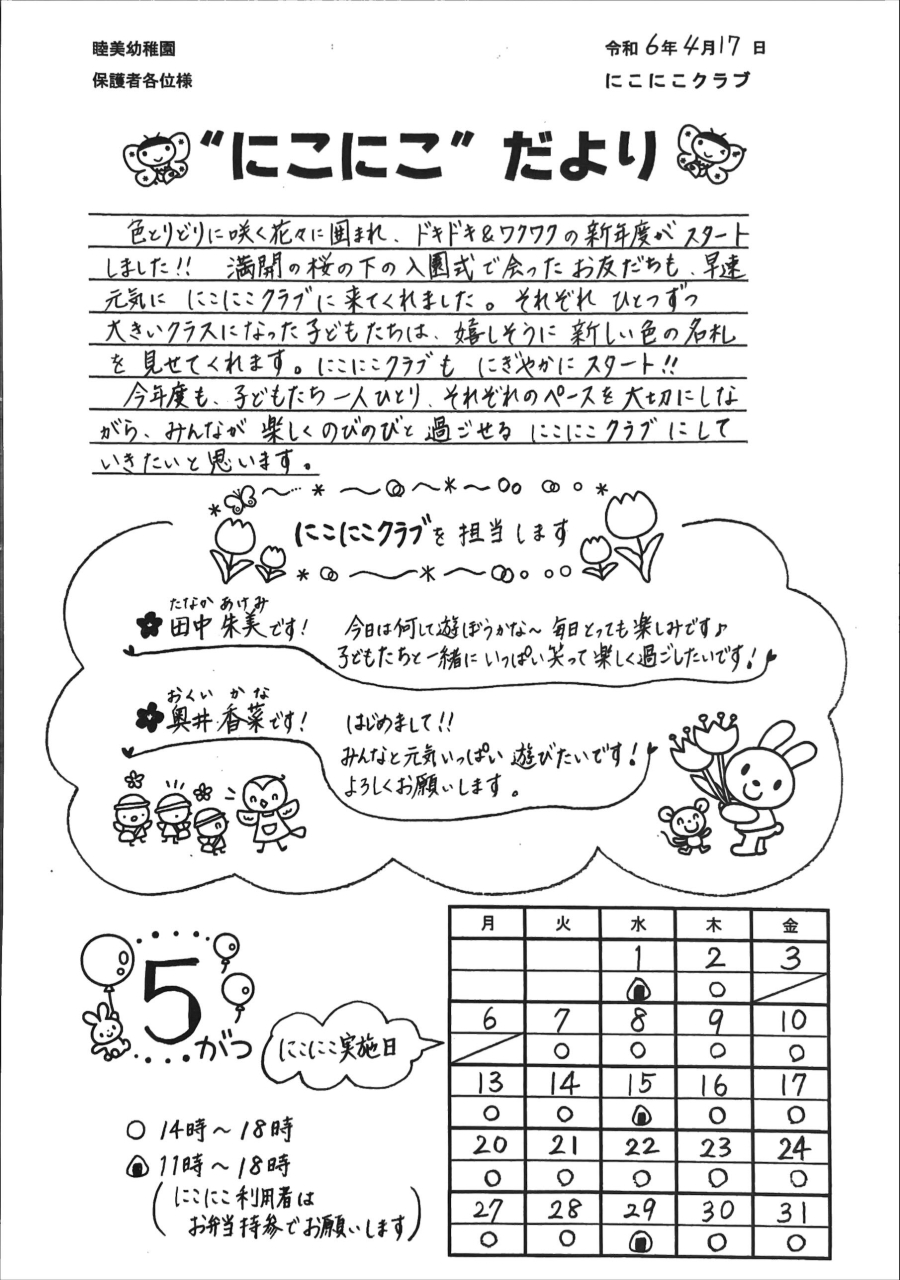 睦美幼稚園
令和 6年 4月17日
保護者各位様
にこにこクラブ
“にこにこ” だより
色とりどりに咲く花々に囲まれ、ドキドキ&ワクワクの新年度が スタート
しました!! 満開の桜の下の入園式で会ったお友だちも、早速
元気に にこにこクラブに来てくれました。それぞれ ひとつずつ
大きいクラスになった子どもたちは、嬉しそうに 新しい色の名札
を 見せてくれます。にこにこクラブも にぎやかにスタート!!
今年度も、子どもたち一人ひとり、それぞれのペースを大切にしな
がら、みんなが 楽しくのびのびと 過ごせる にこにこクラブにして
いきたいと思います。
にこにこクラブを担当します
たなか あけみ
田中 朱美です!
今日は何して遊ぼうかな~ 毎日とっても楽しみです♪
子どもたちと一緒にいっぱい笑って楽しく過ごしたいです!
おくい かな
奥井 香菜です!
はじめまして!!
みんなと元気いっぱい 遊びたいです!
よろしくお願いします。
5がつ
にこにこ実施日
○ 14時~18時
🍙 11時~18時
(にこにこ利用者は
お弁当持参でお願いします)
月 火 水 木 金
1 2 3
🍙 ○ /
6 7 8 9 10
/ ○ ○ ○ ○
13 14 15 16 17
○ ○ 🍙 ○ ○
20 21 22 23 24
○ ○ ○ ○ ○
27 28 29 30 31
○ ○ 🍙 ○ ○